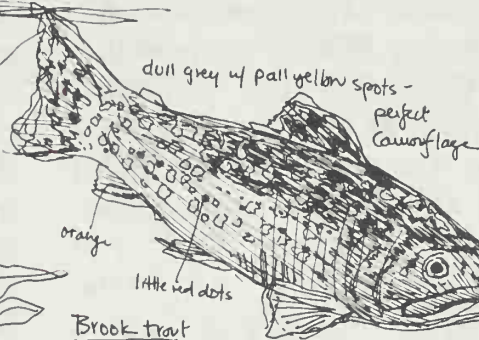 dull grey w/ pall yellow spots -
perfect
camouflage
orange
little red dots
Brook trout